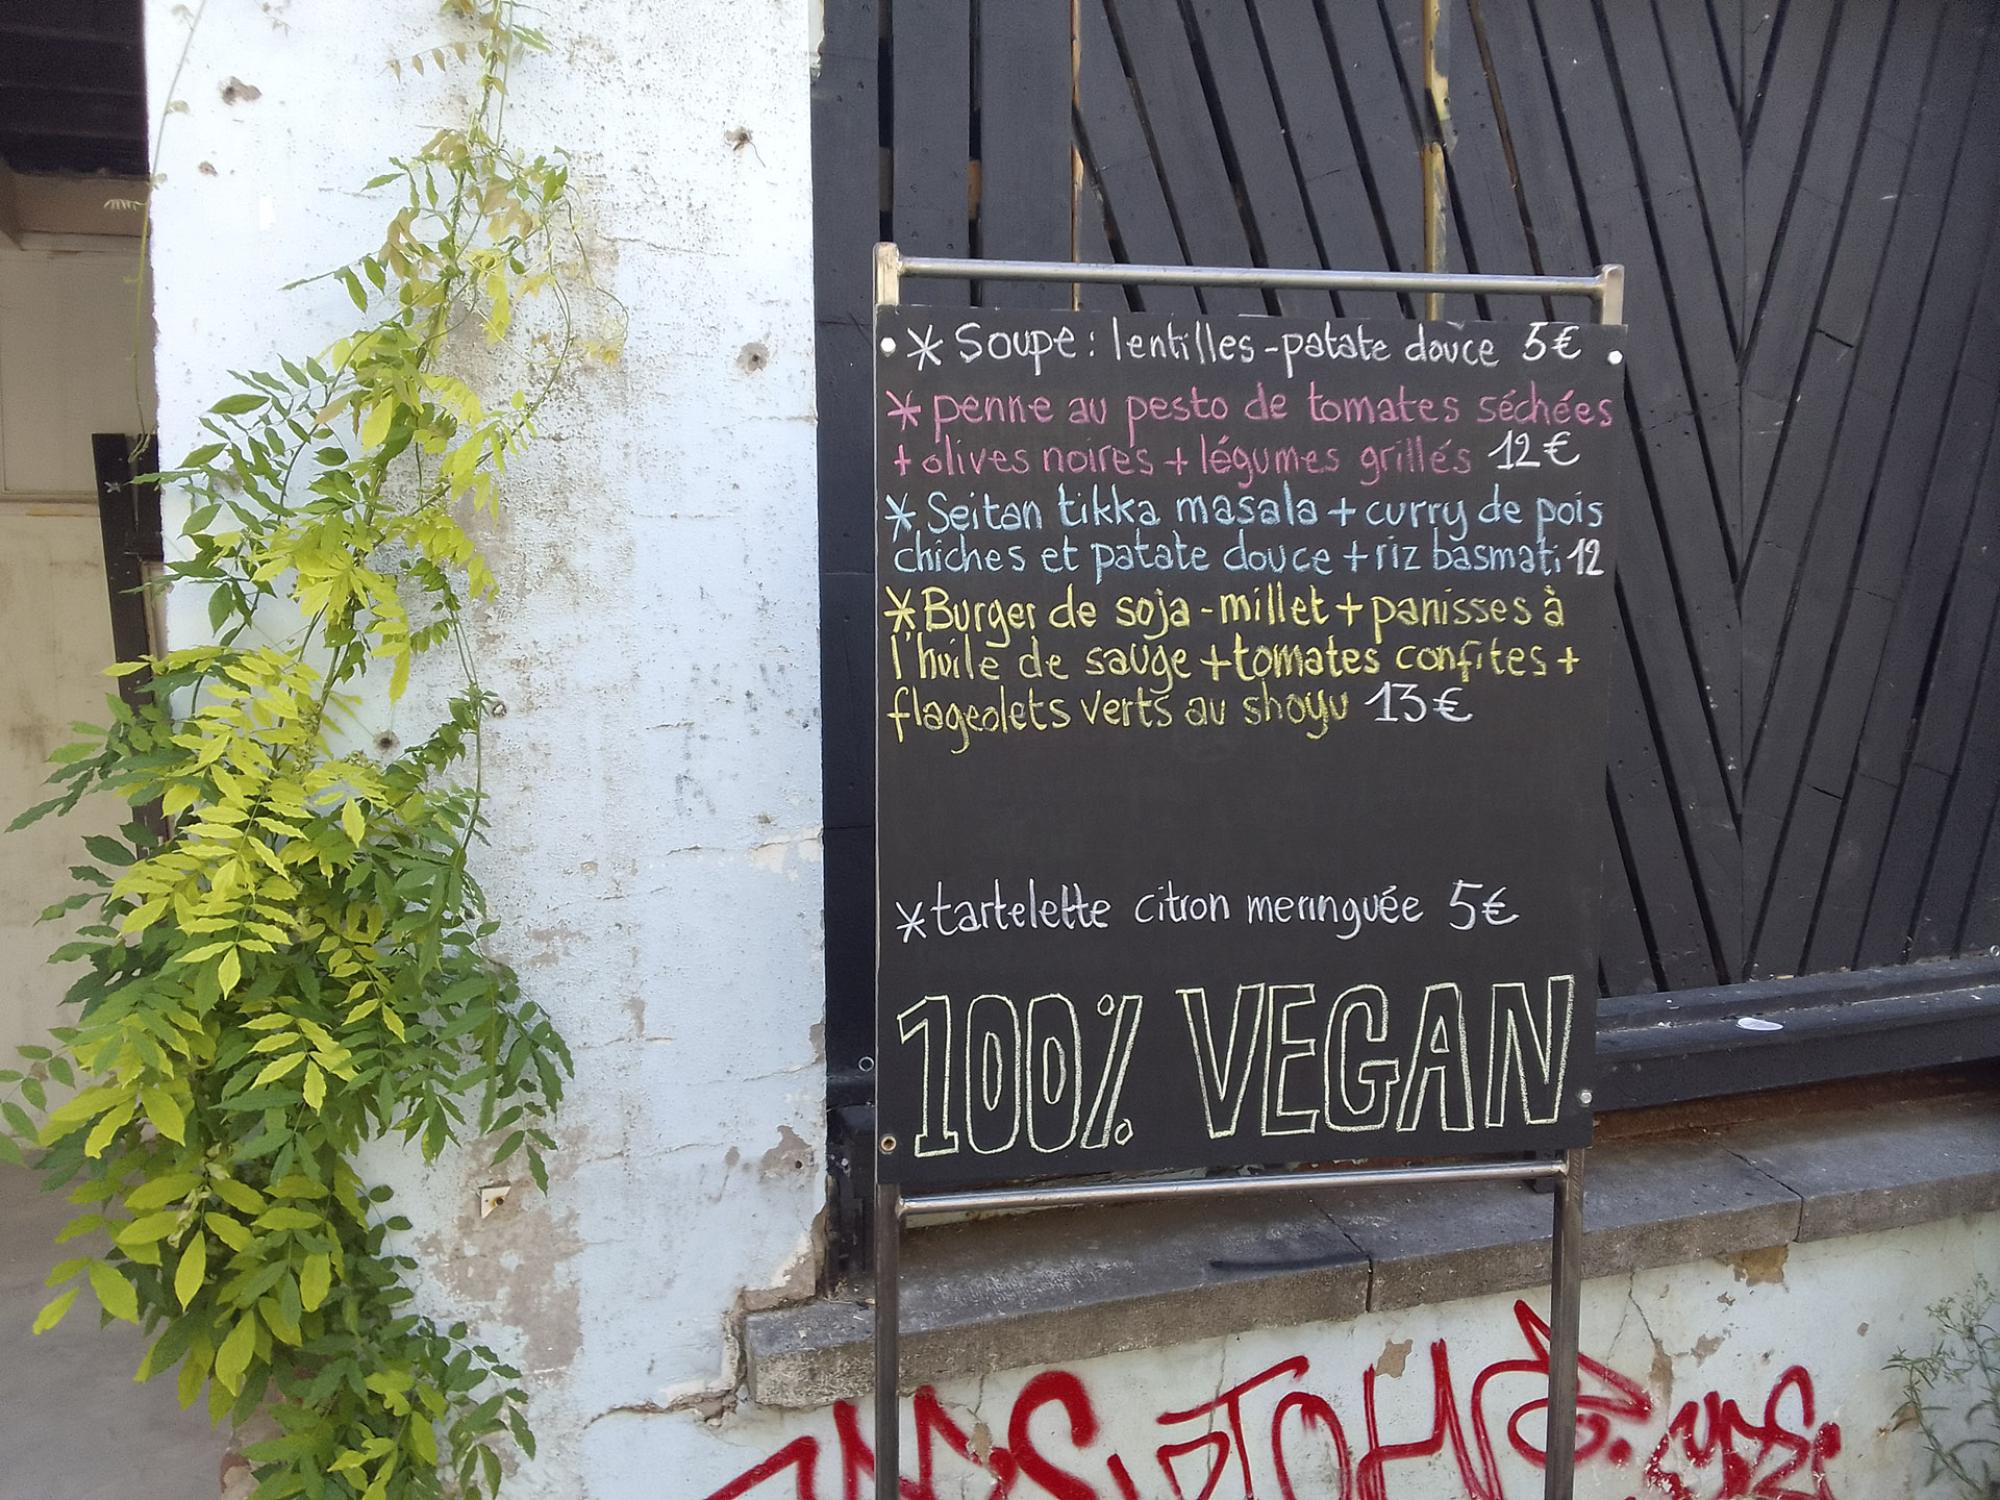 * Soupe : lentilles-patate douce 5€
* penne au pesto de tomates séchées
+ olives noires + légumes grillés 12€
* Seitan tikka masala + curry de pois
chiches et patate douce + riz basmati 12
* Burger de soja-millet + panisses à
l'huile de sauge + tomates confites +
flageolets verts au shoyu 13€
* tartelette citron meringuée 5€
100% VEGAN